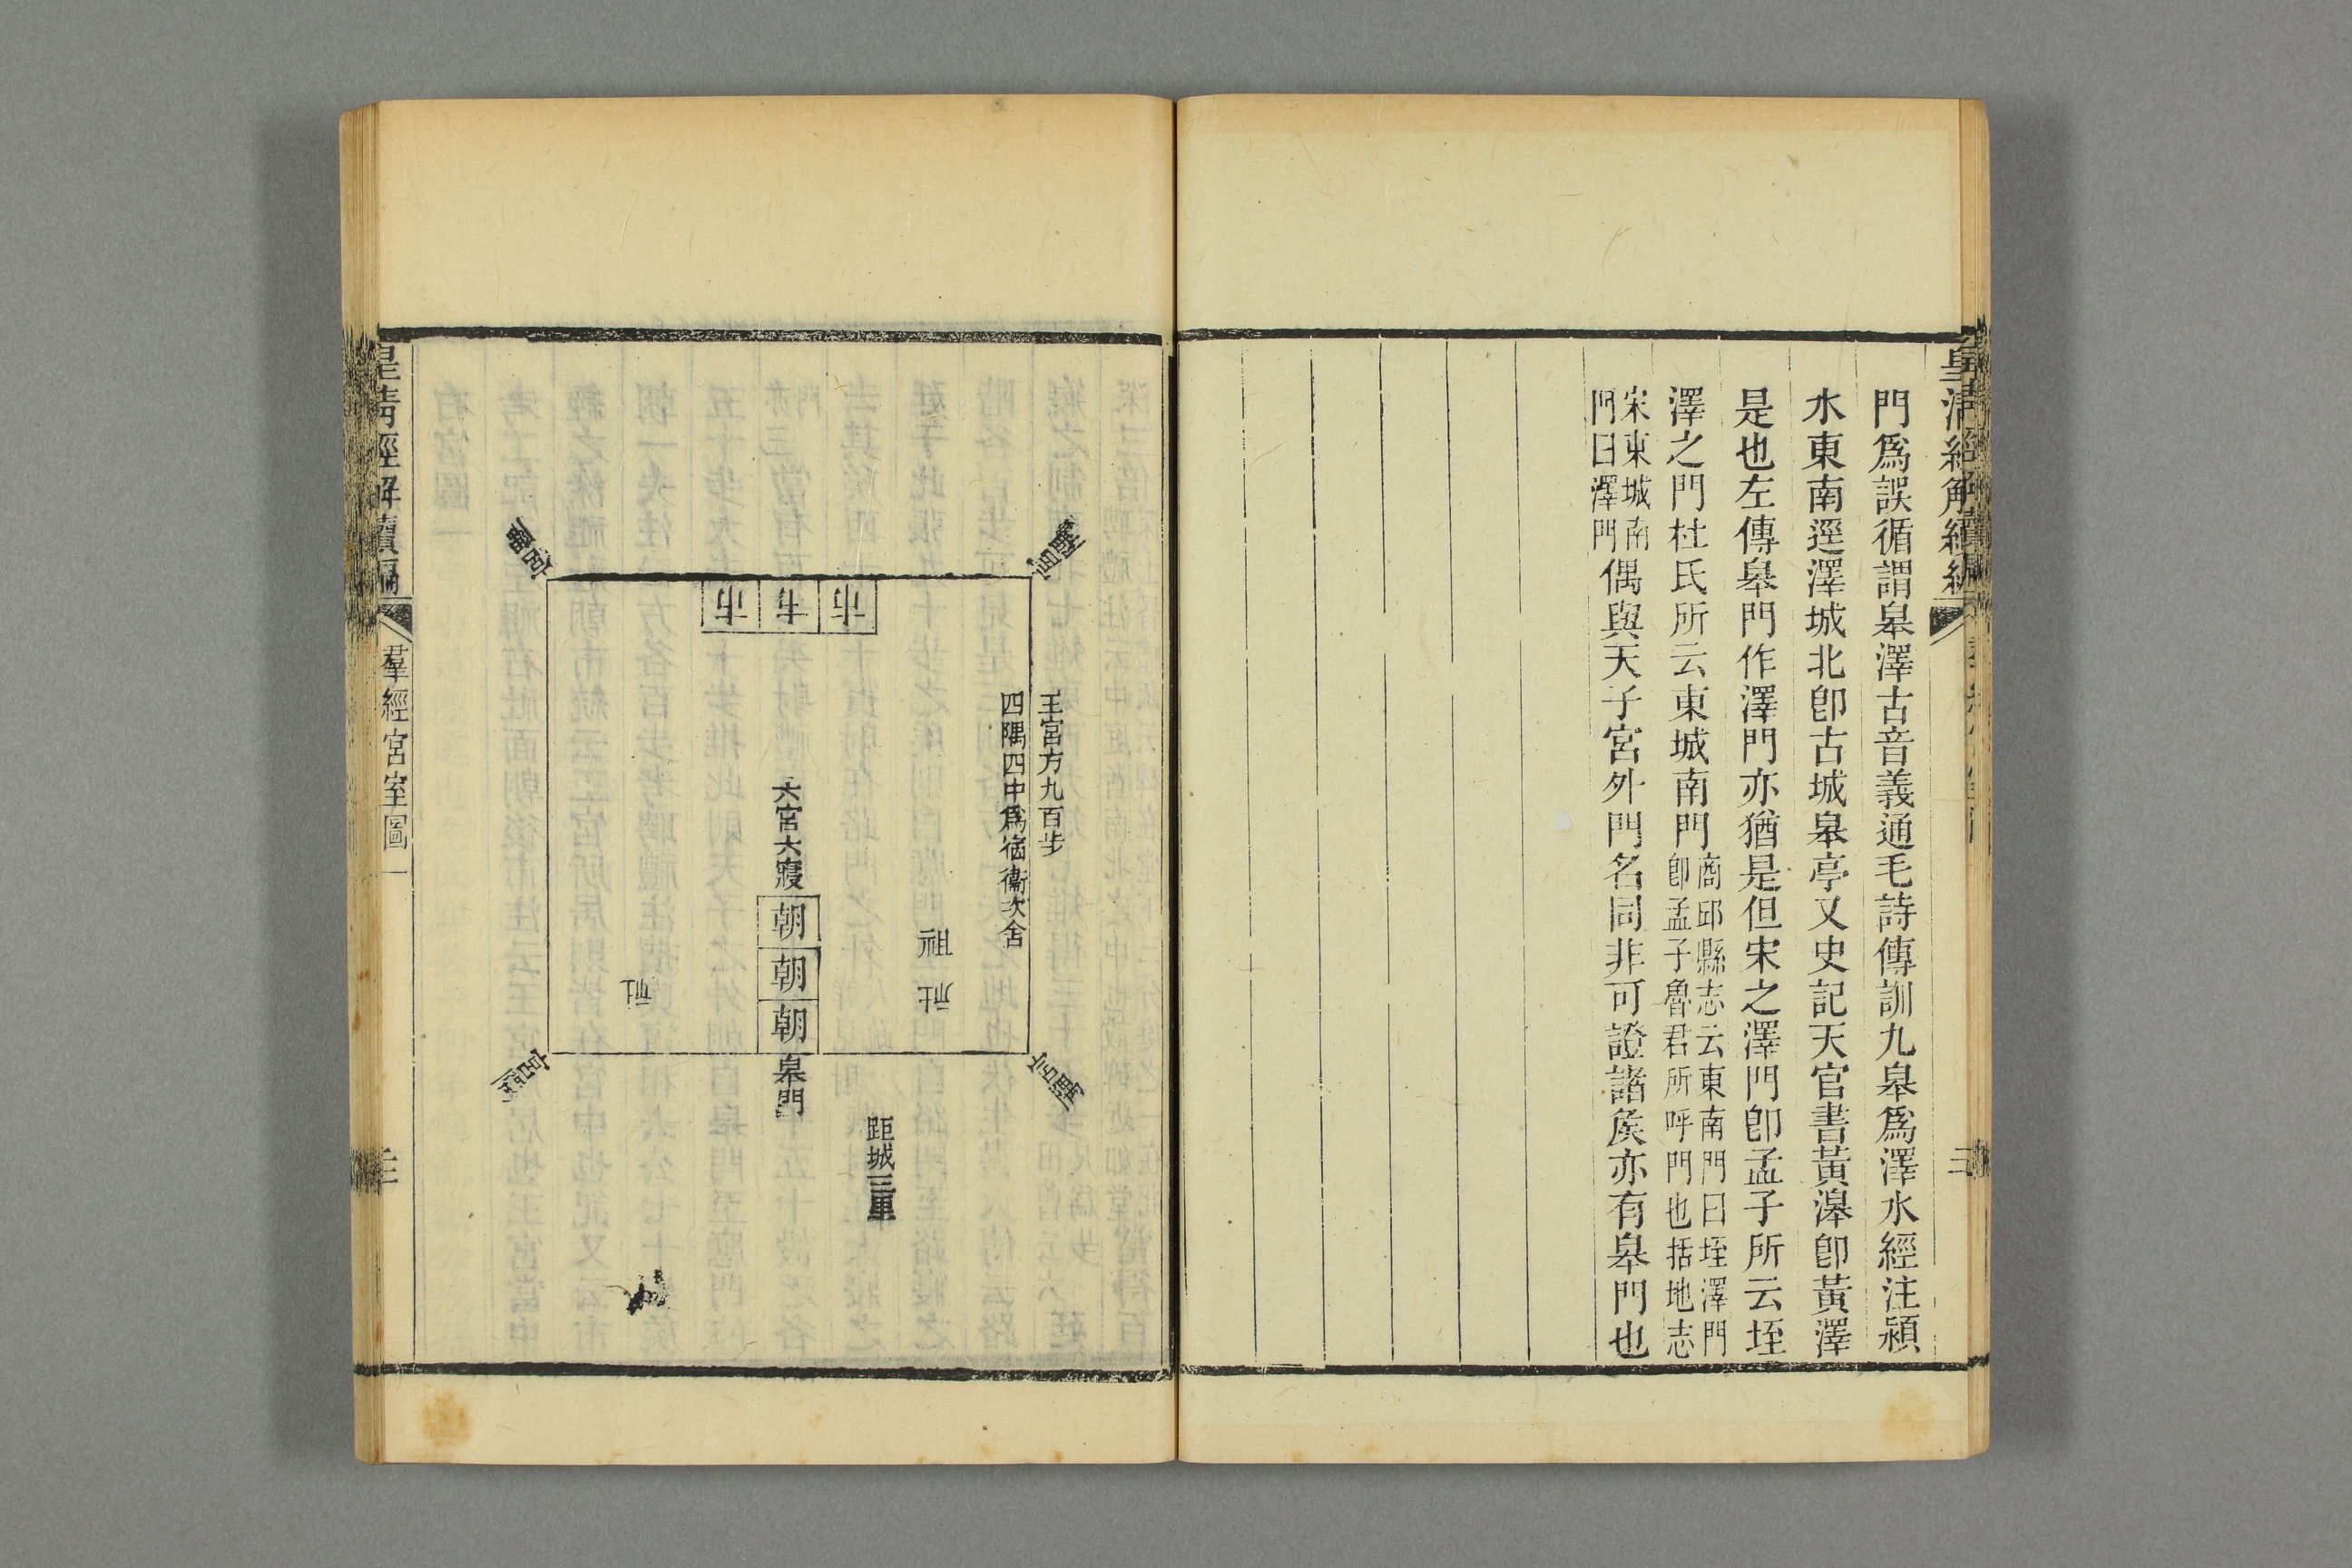 皇淸經解續編
門爲誤循謂皋澤古音義通毛詩傳訓九皋爲澤水經注潁
水東南逕澤城北卽古城皋亭又史記天官書黃澤卽黃澤
是也左傳皋門作澤門亦猶是但宋之澤門卽孟子所云垤
澤之門杜氏所云東城南門商邱縣志云東南門曰垤澤門
卽孟子魯君所呼門也括地志
宋東城南
門曰澤門偶與天子宮外門名同非可證諸矦亦有皋門也
王宮方九百步
四隅四中爲宿衞次舍
宮隅
宮隅
市
市
市
祖
社
六宮六寢
朝
朝
朝
皋門
社
宮隅
宮隅
距城三里
皇淸經解續編
羣經宮室圖一
三